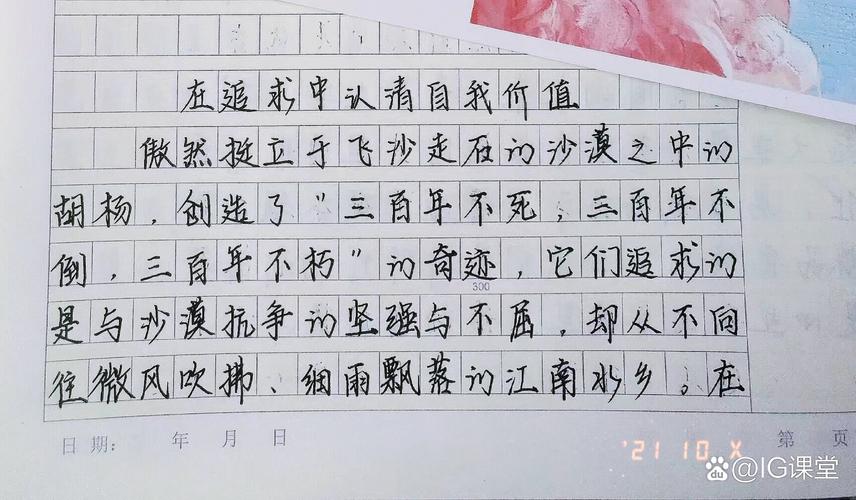 在追求中认清自我价值
傲然挺立于飞沙走石的沙漠之中的
胡杨，创造了“三百年不死，三百年不
倒，三百年不朽”的奇迹，它们追求的
300
是与沙漠抗争的坚强与不屈，却从不向
往微风吹拂、细雨飘落的江南水乡。在
日期： 年 月 日
第 页
'21 10 X
Bai du @IG课堂